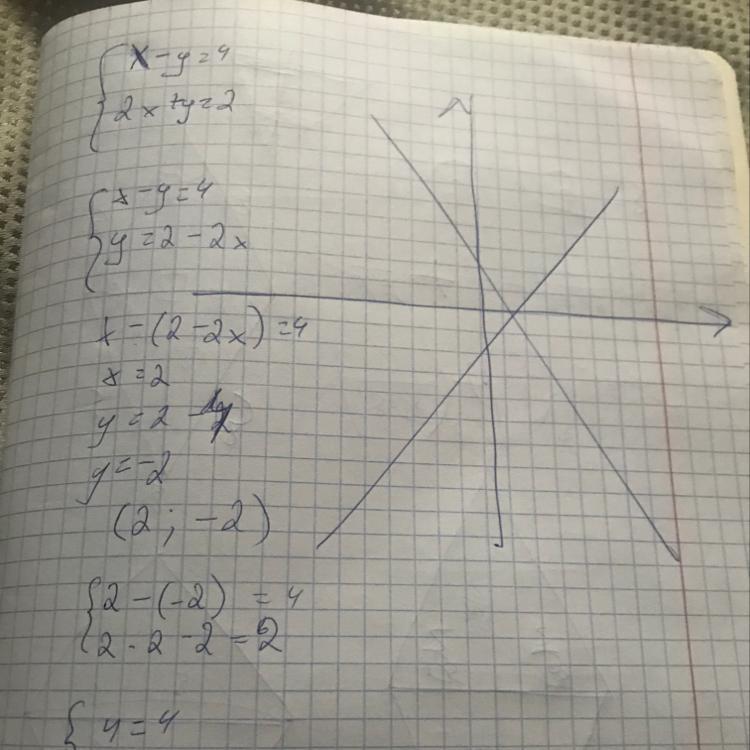 x - y = 4
2x + y = 2
x - y = 4
y = 2 - 2x
x - (2 - 2x) = 4
x = 2
y = 2 -
y = -2
(2; -2)
2 - (-2) = 4
2 · 2 - 2 = 2
4 = 4